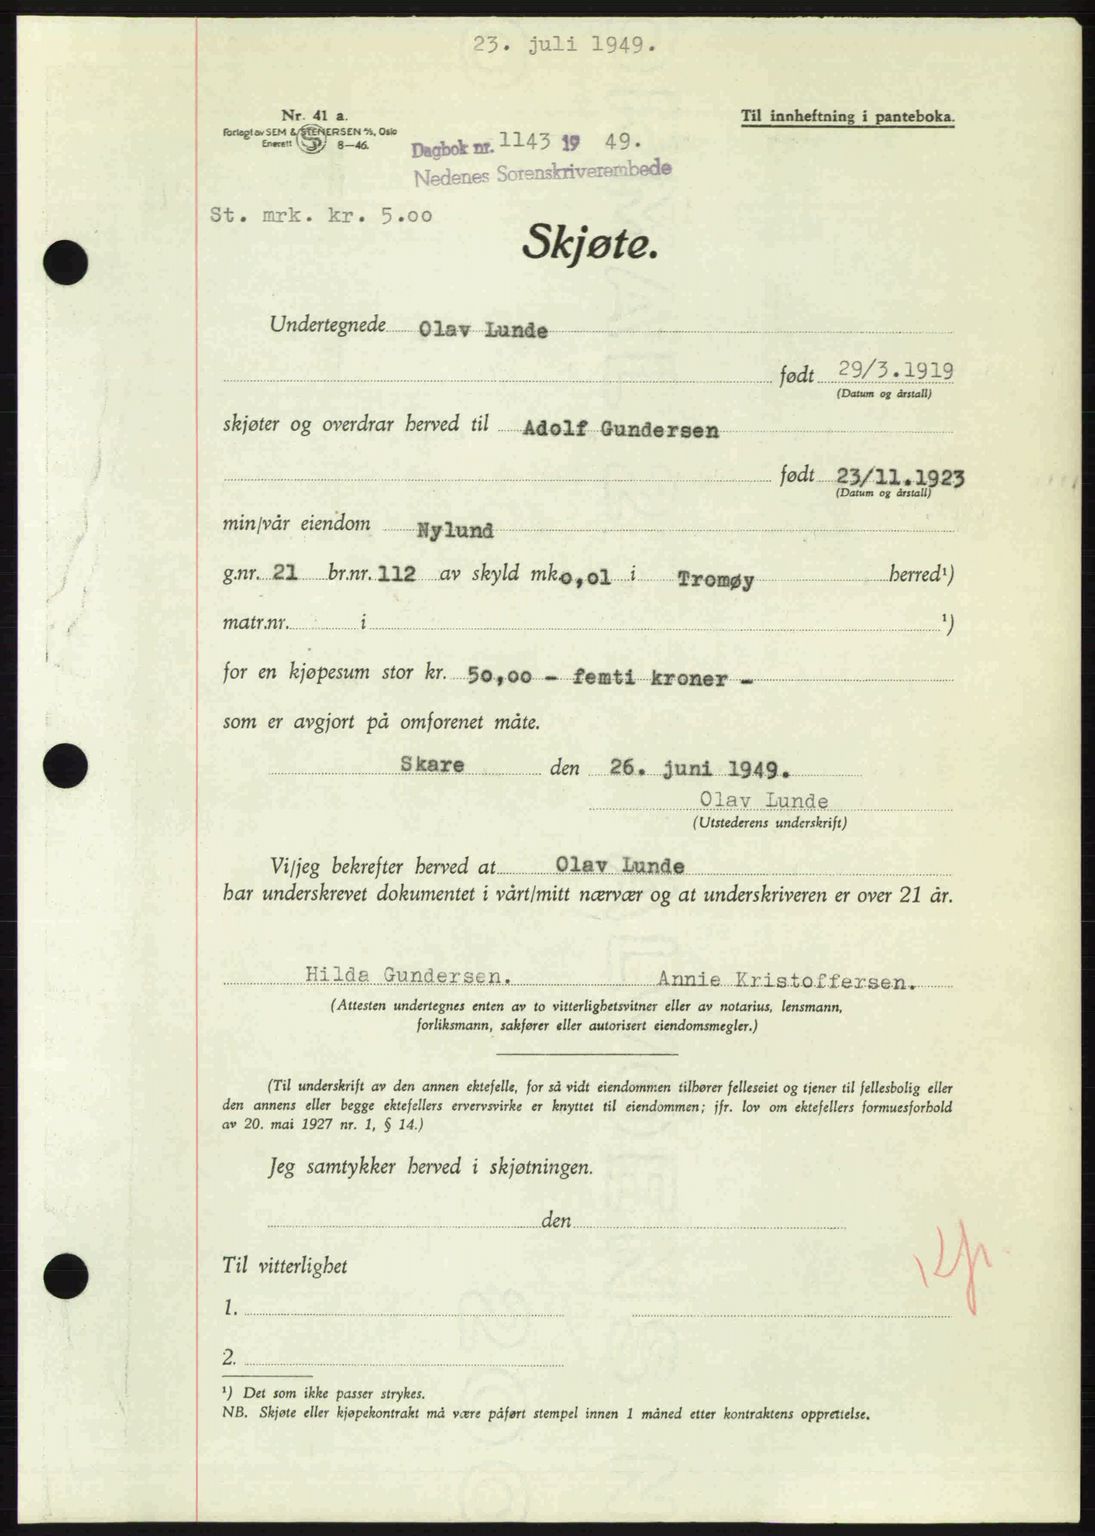 23. juli 1949.
Nr. 41 a.
Til innheftning i panteboka.
Forlagt av SEM & STENERSEN A/S, Oslo
Enerett 8—46.
Dagbok nr. 1143 19 49.
Nedenes Sorenskriverembede
St. mrk. kr. 5.oo
Skjøte.
Undertegnede Olav Lunde
født 29/3.1919
(Datum og årstall)
skjøter og overdrar herved til Adolf Gundersen
født 23/11.1923
(Datum og årstall)
min/vår eiendom Nylund
g.nr. 21 br.nr. 112 av skyld mk. o,o1 i Tromøy herred¹)
matr.nr. i ¹)
for en kjøpesum stor kr. 50,oo - femti kroner -
som er avgjort på omforenet måte.
Skare den 26. juni 1949.
Olav Lunde
(Utstederens underskrift)
Vi/jeg bekrefter herved at Olav Lunde
har underskrevet dokumentet i vårt/mitt nærvær og at underskriveren er over 21 år.
Hilda Gundersen. Annie Kristoffersen.
(Attesten undertegnes enten av to vitterlighetsvitner eller av notarius, lensmann,
forliksmann, sakfører eller autorisert eiendomsmegler.)
(Til underskrift av den annen ektefelle, for så vidt eiendommen tilhører felleseiet og tjener til fellesbolig eller
den annens eller begge ektefellers ervervsvirke er knyttet til eiendommen; jfr. lov om ektefellers formuesforhold
av 20. mai 1927 nr. 1, § 14.)
Jeg samtykker herved i skjøtningen.
den
Til vitterlighet
1.
2.
¹) Det som ikke passer strykes.
NB. Skjøte eller kjøpekontrakt må være påført stempel innen 1 måned etter kontraktens opprettelse.